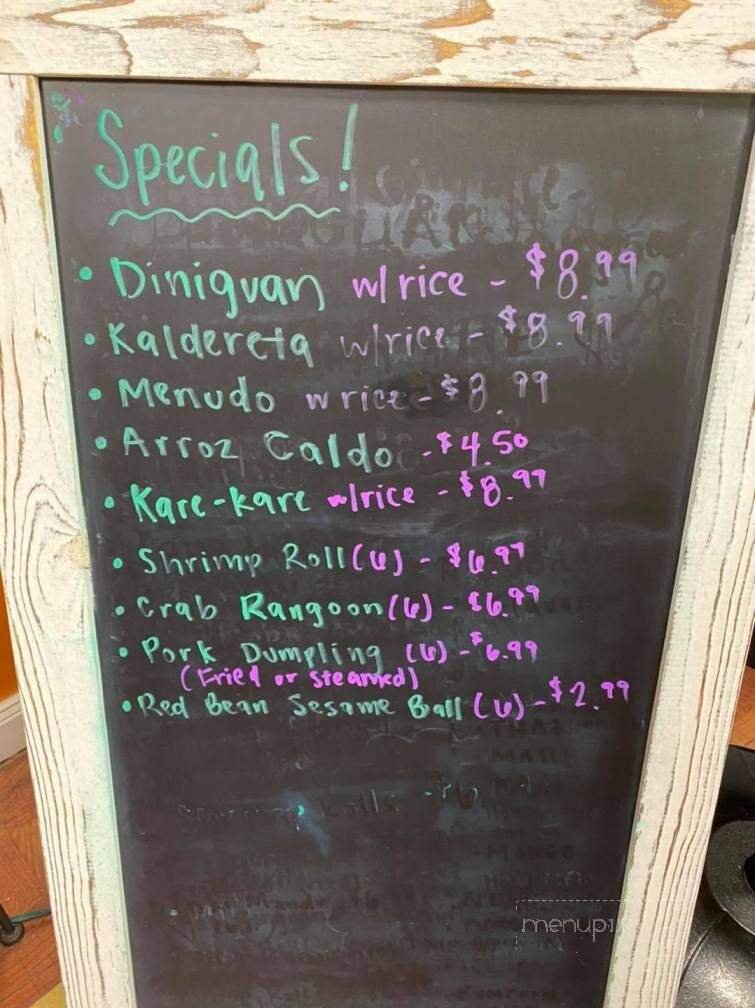 Specials!
• Diniguan w/rice - $8.99
• Kaldereta w/rice - $8.99
• Menudo w rice - $8.99
• Arroz Caldo - $4.50
• Kare-kare w/rice - $8.99
• Shrimp Roll (6) - $6.99
• Crab Rangoon (6) - $6.99
• Pork Dumpling (6) - $6.99
(Fried or steamed)
• Red Bean Sesame Ball (6) - $2.99
MANGO
menupix